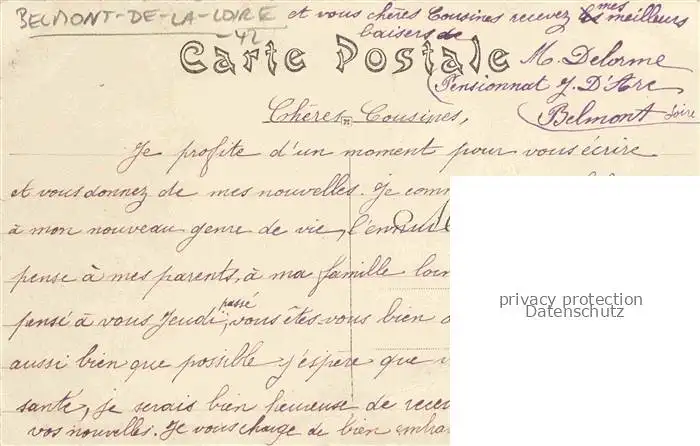 BELMONT-DE-LA-LOIRE
- 42
et vous chères Cousines recevez mes meilleurs
baisers de
Carte Postale
M. Delorme
Pensionnat J. D'Arc
Belmont Loire
Chères Cousines,
Je profite d'un moment pour vous écrire
et vous donnez de mes nouvelles. Je comm
à mon nouveau genre de vie, l'ennui
pense à mes parents, à ma famille loin
pensé à vous Jeudi passé, vous êtes-vous bien
aussi bien que possible j'espère que v
santé, je serais bien heureuse de recev
vos nouvelles. Je vous charge de bien embra
privacy protection
Datenschutz